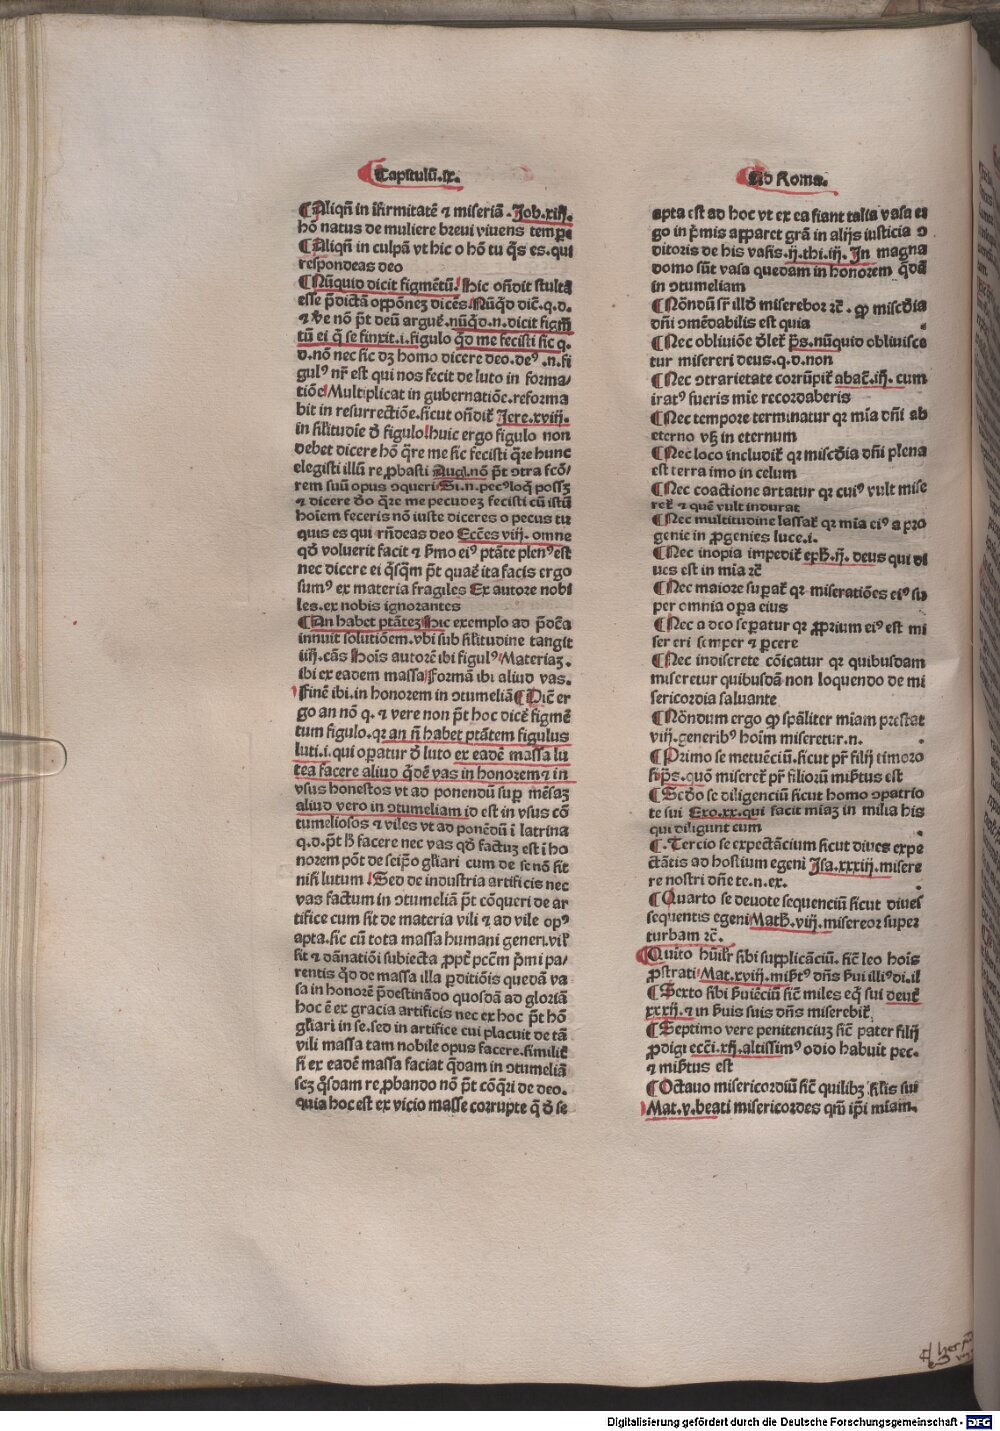 Capitulũ.ix.
¶Aliqñ in ĩfirmitatẽ ⁊ miseriã. Job.xiij.
hõ natus de muliere breui viuens tempe
¶Aliqñ in culpã vt hic o hõ tu q̃s es.qui
respondeas deo
¶Nũquid dicit figmẽtũ. Hic oñdit stultũ
esse p̃dictã opponeʒ dicẽs Nũq̃d dic̃.q.d.
tũ ei q̃ se finxit.i.figulo q̃d me fecisti sic q.
d.nõ nec sic dʒ homo dicere deo.deꝰ.n.fi
gulꝰ nr̃ est qui nos fecit de luto in forma/
tiõe Multiplicat in gubernatiõe.reforma
bit in resurrectiõe.sicut oñdit̃ Jere.xviij.
in silitudie d̃ figulo huic ergo figulo non
debet dicere hõ q̃re me sic fecisti q̃re hunc
elegisti illũ reꝓbasti Aug.nõ p̃t ↄtra scõ/
rem suũ opus ↄqueri Si.n.pecꝰ loq̃ possʒ
⁊ dicere d̃o q̃re me pecudeʒ fecisti cũ istũ
hoĩem feceris nõ iuste diceres o pecus tu
quis es qui rñdeas deo Ecc̃es viij. omne
qd̃ voluerit facit ⁊ ẜmo eiꝰ ptãte plenꝰ est
nec dicere ei q̃sq̃m p̃t quaẽ ita facis ergo
sumꝰ ex materia fragiles Ex autore nobi
les.ex nobis ignorantes
¶An habet ptãteʒ Hic exemplo ad p̃dc̃a
innuit solutiõem.vbi sub silitudine tangit
iiij.cãs Hoĩs autorẽ ibi figulꝰ Materiaʒ.
ibi ex eadem massa Formã ibi aliud vas.
Finẽ ibi.in honorem in ↄtumeliã ¶Dic̃ er
go an nõ q.⁊ vere non p̃t hoc dicẽ figmẽ
tum figulo.qꝛ an ñ habet ptãtem figulus
luti.i.qui oꝑatur d̃ luto ex eadẽ massa lu
tea facere aliud q̃dẽ vas in honorem ⁊ in
vsus honestos vt ad ponendũ suꝑ mẽsaʒ
aliud vero in ↄtumeliam id est in vsus cõ
tumeliosos ⁊ viles vt ad ponẽdũ ĩ latrina
q.d.p̃t h̃ facere nec vas qd̃ factuʒ est ĩ ho
norem põt de seip̃o gl̃iari cum de se nõ sit
nisi lutum Sed de industria artificis nec
vas factum in ↄtumeliã p̃t cõqueri de ar
tifice cum sit de materia vili ⁊ ad vile opꝰ
apta.sic cũ tota massa humani generi.vil̃
sit ⁊ dãnatiõi subiecta ꝓpt̃ pcc̃m p̃mi pa/
rentis q̃d de massa illa ꝑditiõis quedã va
sa in honorẽ p̃destinãdo quosdã ad gloriã
hoc ẽ ex gracia artificis nec ex hoc p̃t hõ
gl̃iari in se.sed in artifice cui placuit de tã
vili massa tam nobile opus facere.similit̃
si ex eadẽ massa faciat q̃dam in ↄtumeliã
scʒ q̃sdam reꝓbando nõ p̃t cõq̃ri de deo.
quia hoc est ex vicio masse corrupte q̃ d̃ se
Ad Roma.
apta est ad hoc vt ex ea fiant talia vasa er
go in p̃mis apparet grã in alijs iusticia ↄ
ditoris de his vasis.ij.thi.iij. In magna
domo sũt vasa quedam in honorem q̃dã
in ↄtumeliam
¶Nõndũ sr̃ illd̃ miserebor ⁊c̃. ꝙ misc̃dia
dñi ↄmẽdabilis est quia
¶Nec obliuiõe d̃let̃ p̃s.nũquid obliuisce
tur misereri deus.q.d.non
¶Nec ↄtrarietate corrũpit̃ abac̃.iij. cum
iratꝰ fueris mie recordaberis
¶Nec tempore terminatur qꝛ mĩa dñi ab
eterno vsqʒ in eternum
¶Nec loco includit̃ qꝛ misc̃dia dñi plena
est terra imo in celum
¶Nec coactione artatur qꝛ cuiꝰ vult mise
ret̃ ⁊ quẽ vult indurat
¶Nec multitudine lassat̃ qꝛ mĩa eiꝰ a pro
genie in ꝓgenies luce.i.
¶Nec inopia impedit̃ eph̃.ij. deus qui di
ues est in mia ⁊c̃
¶Nec maiore suꝑat̃ qꝛ miseratiões eiꝰ su
per omnia oꝑa eius
¶Nec a deo seꝑatur qꝛ ꝓprium eiꝰ est mi
sereri semper ⁊ ꝑcere
¶Nec indiscrete cõicatur qꝛ quibusdam
miseretur quibusdã non loquendo de mi
sericordia saluante
¶Nõndum ergo ꝙ sp̃aliter miam prestat
viij.generibꝰ hoĩm miseretur.n.
¶Primo se metuẽciũ.sicut pr̃ filij timoro
si p̃s.quõ miseret̃ pr̃ filiorũ mib̃tus est
¶Scd̃o se diligenciũ sicut homo ↄpatrio
te sui Exo.xx.qui facit miaʒ in milia his
qui diligunt eum
¶.Tercio se expectãcium sicut diues expe
ctãtis ad hostium egeni Jsa.xxxiij.misere
re nostri dñe te.n.ex.
¶Quarto se deuote sequenciũ sicut diues
sequentis egeni Math̃.viij.misereor super
turbam ⁊c̃.
¶Quĩto hũilr̃ sibi supplicãciũ. sic̃ leo hoĩs
ꝓstrati Mat.xviij.mib̃tꝰ dñs ẜui illiꝰ di.il
¶Sexto sibi ẜuiẽciũ sic̃ miles eq̃ sui deut̃
xxxij. ⁊ in ẜuis suis dñs miserebit̃
¶Septimo vere penitenciuʒ sic̃ pater filij
ꝓdigi ecci.xij.altissimꝰ odio habuit pec.
⁊ mib̃tus est
¶Octauo misericordiũ sic̃ quilibʒ filis sui
Mat.v.beati misericordes qm̃ ip̃i miam.
Digitalisierung gefördert durch die Deutsche Forschungsgemeinschaft - DFG